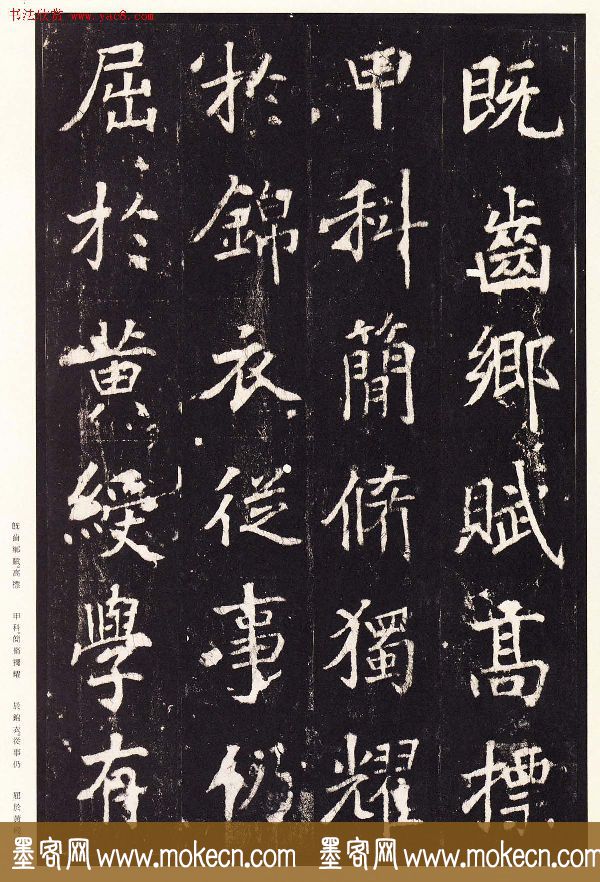 书法欣赏 www.yac8.com
既齒鄉賦高標
甲科簡脩獨耀
於錦衣從事仍
屈於黄綬學有
既齒鄉賦高標 甲科簡脩獨耀 於錦衣從事仍 屈於黄
墨客网 www.mokecn.com 墨客网 www.mokecn.com